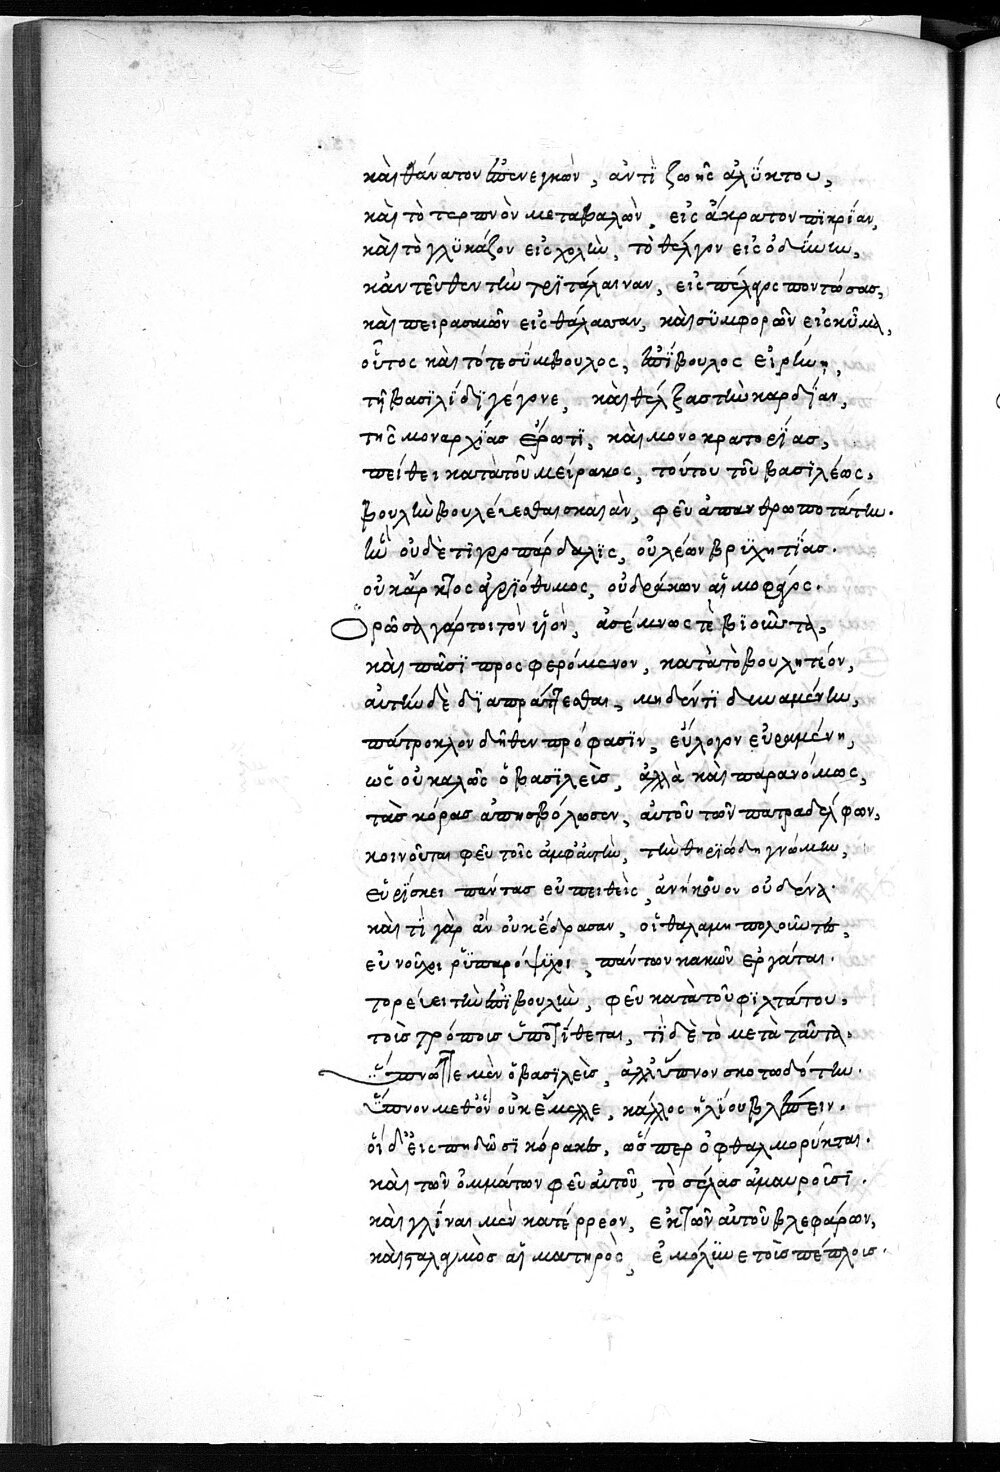 καὶ θάνατον ἐπενεγκὼν, ἀντὶ ζωῆς ἀλύκτου,
καὶ τὸ τερπνὸν μεταβαλὼν, εἰς ἄκρατον πικρίαν,
καὶ τὸ γλυκάζον εἰς χολὴν, τὸ θέλγον εἰς ὀδύνην,
κἀντεῦθεν τὴν τριτάλαιναν, εἰς πέλαγος ποντώσας,
καὶ πειρασμῶν εἰς θάλασσαν, καὶ συμφορῶν εἰς κῦμα,
οὗτος καὶ τότε σύμβουλος, ἐπίβουλος εἰρήνη,
τῇ βασιλίδι γέγονε, καὶ θέλξας τὴν καρδίαν,
τῆς μοναρχίας ἔρωτι, καὶ μονοκρατορίας,
πείθει κατὰ τοῦ μείρακος, τούτου τοῦ βασιλέως,
βουλὴν βουλεύεσθαι σκαιὰν, φεῦ ἀπανθρωποτάτην.
ἣν οὐδὲ τίγρο πάρδαλις, οὐ λέων βρυχητίας.
οὐκ ἄρκτος ἀγριόθυμος, οὐ δράκων αἱμοφάγος.
Ὁρῶσα γάρτοι τὸν υἱὸν, ἀσέμνως τὲ βιοῦντα,
καὶ πᾶσι προσφερόμενον, κατὰ τὸ βουλητέον,
αὐτὴν δὲ διαπράττεσθαι, μηδέν τι δυναμένην,
πάτροκλον δῆθεν πρόφασιν, εὔλογον εὑραμένη,
ὡς οὐ καλῶς ὁ βασιλεὺς, ἀλλὰ καὶ παρανόμως,
τὰς κόρας ἀπησβόλωσεν, αὐτοῦ τῶν πατραδέλφων,
κοινοῦται φεῦ τοῖς ἀμφ' αὐτὴν, τὴν θηριώδη γνώμην,
εὑρίσκει πάντας εὐπειθεῖς, ἀνήκουον οὐδένα.
καὶ τί γὰρ ἂν οὐκ ἔδρασαν, οἱ θαλαμηπολοῦντες,
εὐνοῦχοι ῥυπαρόψυχοι, πάντων κακῶν ἐργάται.
τορεύει τὴν ἐπιβουλὴν, φεῦ κατὰ τοῦ φιλτάτου,
τοῖς τρόποις ὑποτίθεται, τί δὲ τὸ μετὰ ταῦτα,
ὕπνωττε μὲν ὁ βασιλεὺς, ἀλλ' ὕπνον σκοτωδότην.
ὕπνον μεθ' ὃν οὐκ ἔμελλε, κάλλος ἡλίου βλέπειν.
οἱ δ' εἰσπηδῶσι κόρακες, ὥσπερ ὀφθαλμορύκται.
καὶ τῶν ὀμμάτων φεῦ αὐτοῦ, τὸ σέλας ἀμαυροῦσι.
καὶ γλῆναι μὲν κατέρρεον, ἐκ τῶν αὐτοῦ βλεφάρων,
καὶ σταλαγμὸς αἱματηρὸς, ἐμόλυνε τοῖς πέπλοις.